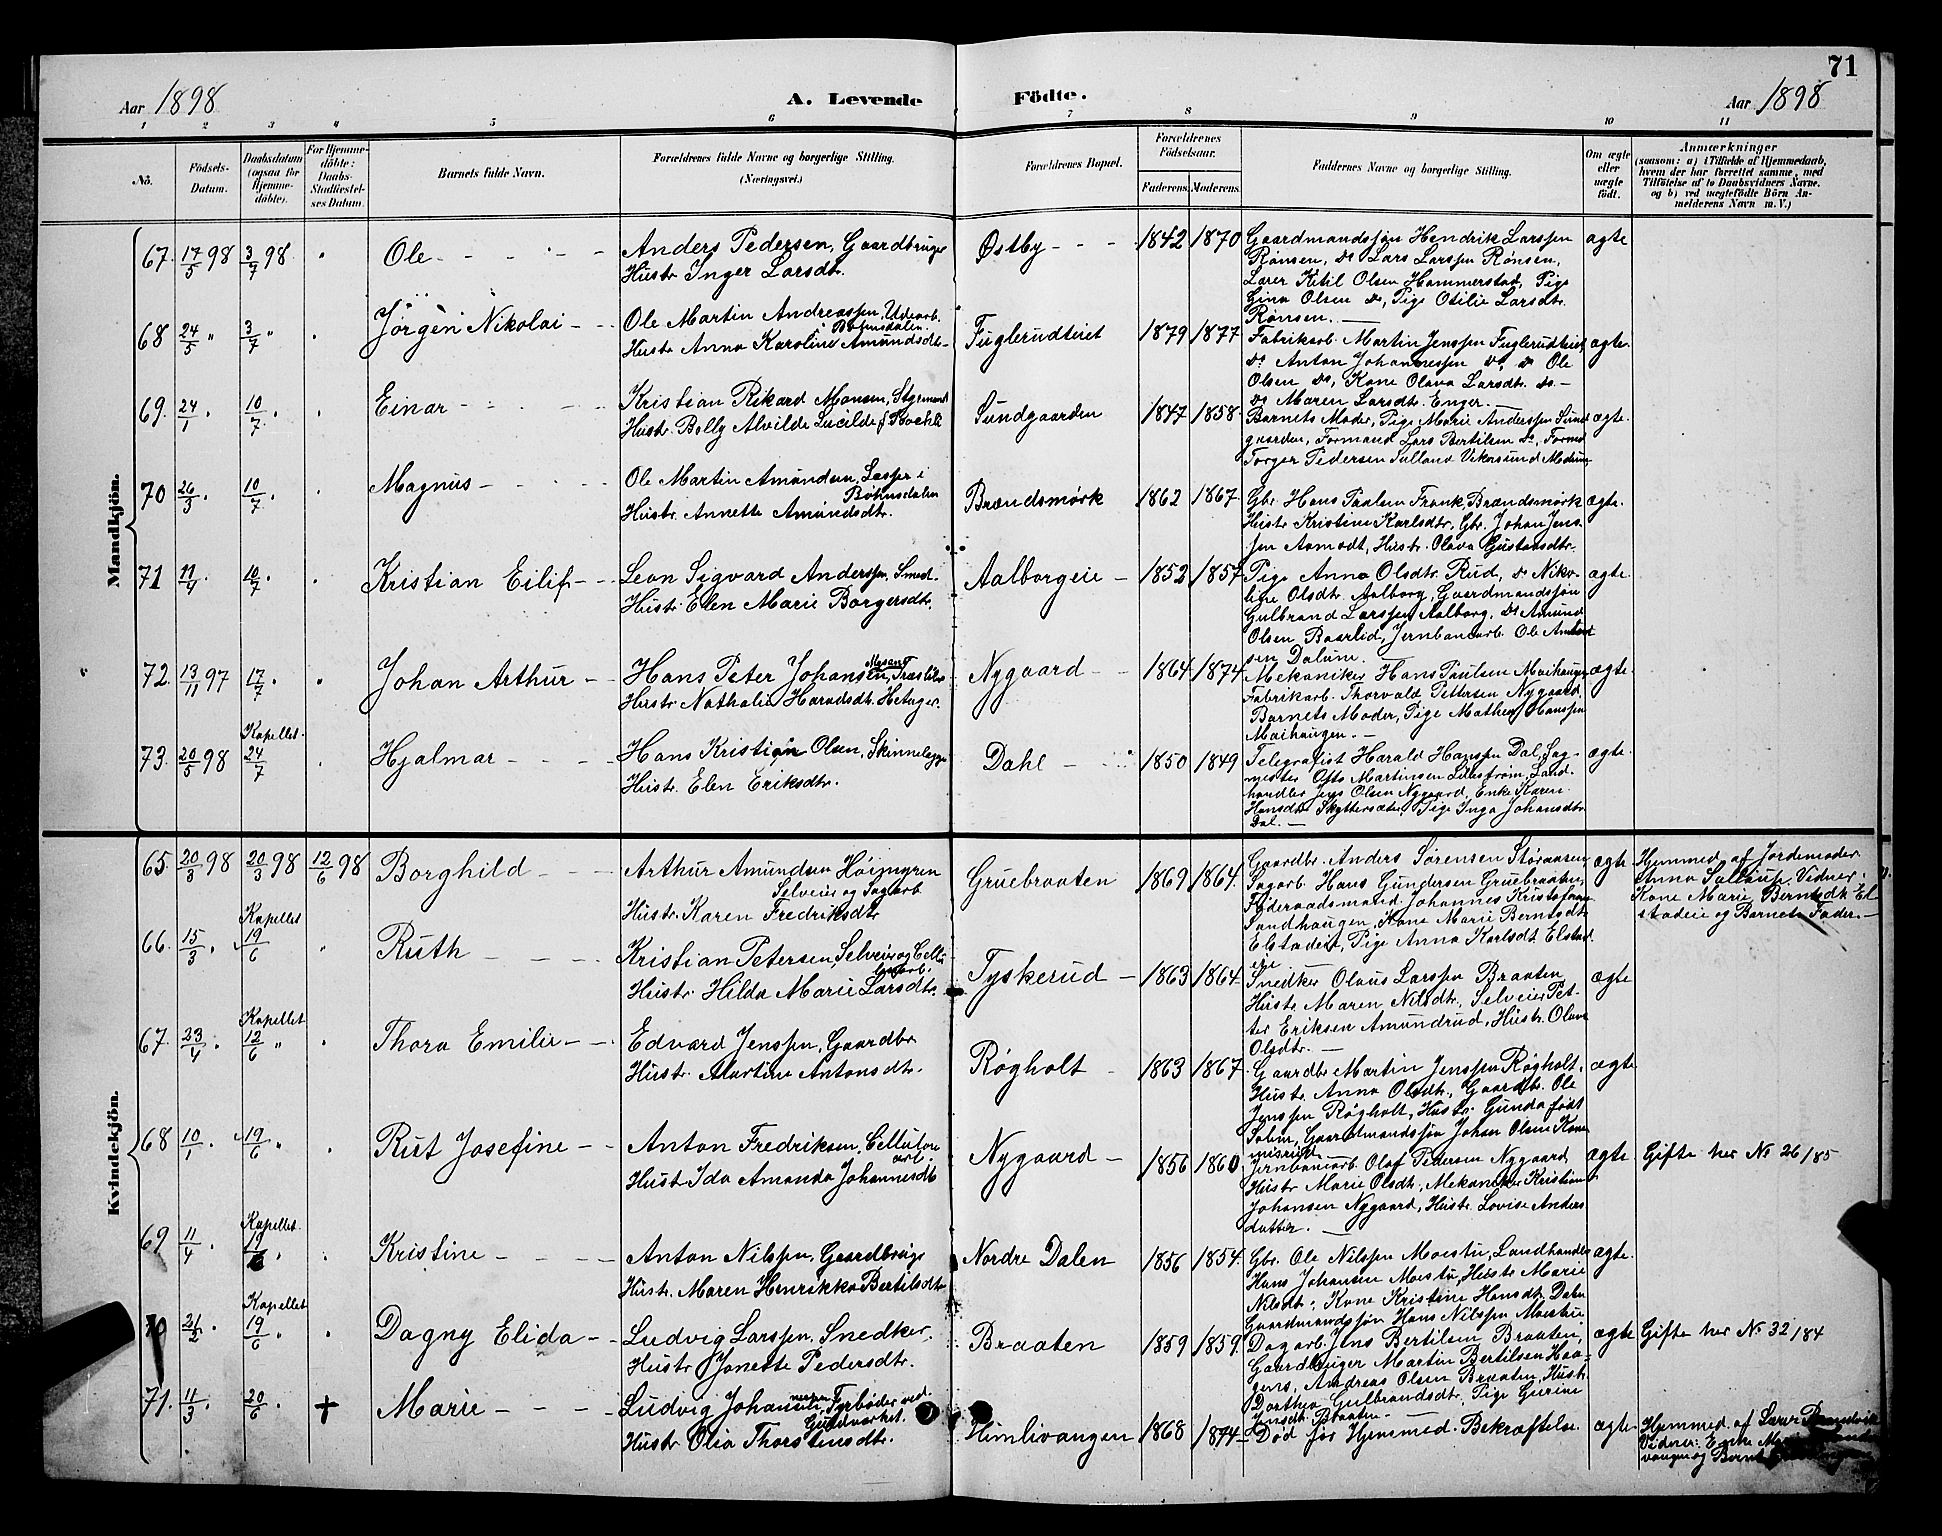 71
Aar 1898
A. Levende Födte.
Aar 1898
1 2 3 4 5 6 7 8 9 10 11
No.
Födsels-Datum.
Daabsdatum (ogsaa for Hjemmedöbte).
For Hjemmedöbte: Daabs-Stadfæstelses Datum.
Barnets fulde Navn.
Forældrenes fulde Navne og borgerlige Stilling. (Næringsvei.)
Forældrenes Bopæl.
Forældrenes Födselsaar.
Faderens. Moderens.
Faddernes Navne og borgerlige Stilling.
Om ægte eller uægte födt.
Anmærkninger
(saasom: a) i Tilfælde af Hjemmedaab,
hvem der har forrettet samme, med
Tilföielse af to Daabsvidners Navne,
og b) ved uægtefödte Börn Anmelderens Navn m. V.)
Mandkjön.
67. 17/5 98 3/7 98 Ole
Anders Pedersen, Gaardbruger
Hustr. Inger Larsdtr.
Østby 1842 1870
Gaardmandssøn Hendrik Larssen
Rønsen, do Lars Larssen Rønsen,
Lærer Ketil Olsen Hammerstad, Pige
Gina Olsen do, Pige Otilie Larsdtr.
Rønsen.
ægte
68 24/5 " 3/7 " Jörgen Nikolai
Ole Martin Andreassen, Uldarb.
Bøhnsdalen.
Hustr. Anna Karoline Amundsdtr.
Fuglerudeiet 1879 1877
Fabrikarb. Martin Jenssen Fuglerudeiet
do Anton Johannessen do, do Ole
Olsen do, Kone Olava Larsdtr. do.
do Maren Larsdtr. Enger.
ægte.
69. 24/1 10/7 Einar
Kristian Rikard Monsen, Styrmand
Hustr. Bolly Alvilde Lucilde f. Bockli
Sundgaarden 1847 1858
Barnets Moder, Pige Marie Anderssen Sund
gaarden, Formand Lars Bertilsen do, Formd
Torger Pedersen Sulland Vikersund Modum
ægte.
70 26/3 10/7 Magnus
Ole Martin Amundsen, Læsser i
Bøhnsdalen
Hustr. Annette Amundsdtr.
Brændsmørk 1862 1867
Gbr. Hans Paulsen Frank, Brændsmørk
Hustr Kristine Karlsdtr, Gbr. Johan Jens
sen Aamodt, Hustr. Olava Gustavsdtr.
ægte.
71 11/4 10/7 Kristian Eilif
Leon Sigvard Anderssen, Smed.
Hustr. Elen Marie Borgersdtr.
Aalborgeie 1852 1857
Pige Anna Olsdtr. Rud, do Niko-
line Olsdtr. Aalborg, Gaardmandssøn
Gulbrand Larssen Aalborg, do Amund
Olsen Baarlid, Jernbanearb. Ole Anton
sen Dalune.
ægte.
72. 13/11 97 17/7 Johan Arthur
Hans Peter Johansen, Træsliber
Hustr. Nathalie Haraldsdtr. Hetager.
Nygaard 1864 1874
Mekaniker Hans Paulsen Maihaugen
Fabrikarb. Thorvald Pettersen Nygaard,
Barnets Moder, Pige Mathea Hanssen
Maihaugen.
ægte.
73. 20/5 98 Kapellet 24/7 Hjalmar
Hans Kristian Olsen, Skinnelegger
Hustr. Elen Eriksdtr.
Dahl 1850 1849
Telegrafist Harald Hanssen Dal, Sag-
mester Otto Martinsen Lillestrøm, Land
handler Jens Olsen Nygaard, Enke Karen
Hansdtr Skyttersæter, Pige Inga Johansdtr
Dal.
ægte.
Kvindekjön.
65. 20/3 98 20/3 98 12/6 98 Borghild
Arthur Amundsen Høijngren
Selveier og Sagarb
Hustr. Karen Fredriksdtr
Gruebraaten 1869 1864
Gaardbr. Anders Sørensen Støraasen
Sagarb. Hans Gundersen Gruebraaten,
Føderaadsmand Johannes Kristofersen
Sandhaugen, Kone Marie Berntsdtr
Elstadeiet, Pige Anna Karlsdtr. Elstad
eie
ægte
Hjemmed. af Jordemoder
Anna Sallerup. Vidner:
Kone Marie Berntsdtr El
stadeie og Barnets Fader.
66. 15/3 Kapellet 19/6 Ruth
Kristian Petersen, Selveier og Cellu
losearb.
Hustr. Hilda Marie Larsdtr.
Tyskerud 1863 1864
Snedker Olaus Larssen Braaten
Hustr. Maren Nilsdtr, Selveier Pet-
ter Eriksen Amundrud, Hustr. Olava
Olsdtr.
ægte
67. 23/4 Kapellet 12/6 " Thora Emilie
Edvard Jenssen, Gaardbr
Hustr. Martine Antonsdtr.
Røgholt 1863 1867
Gaardbr Martin Jenssen Røgholt,
Hustr. Anna Olsdtr, Gaardbr. Ole
Jenssen Røgholt, Hustr. Gunda født
Solem, Gaardmandssøn Johan Olsen Kom
misrud
ægte
68 10/1 19/6 " Rut Josefine
Anton Fredriksen, Cellulose
arb.
Hustr Ida Amanda Johannesdtr
Nygaard 1856 1860
Jernbanearb. Olaf Pedersen Nygaard
Hustr Marie Olsdtr, Mekaniker Kristian
Johansen Nygaard, Hustr. Lovise Anders
datter.
ægte
Gifte her No 26/85
69 11/4 Kapellet. 19/6 Kristine
Anton Nilssen, Gaardbruger
Hustr. Maren Henrikka Bertilsdtr
Nordre Dalen 1856 1854
Gbr. Ole Nilssen Moestu, Landhandler
Hans Johansen Moestu, Hustr Marie
Nilsdtr, Kone Kristine Hansdtr Dalen
Gaardmandssøn Hans Nilssen Moestue
ægte.
70 21/2 Kapellet 19/6 " Dagny Elida
Ludvig Larssen, Snedker.
Hustr Jonette Pedersdtr.
Braaten 1859 1859
Dagarb. Jens Bertilsen Braaten,
Gaardbruger Martin Bertilsen Haa-
gens, Andreas Olsen Braaten, Hustr
Dorthea Gulbrandsdtr, Pige Gurine
Jensdtr. Braaten
ægte
Gifte her No 32/84
71. 11/3 20/6 + Marie
Ludvig Johansen, Fyrbøder ved
Guldverket.
Hustr Olia Thorstensdtr.
Himlivangen 1868 1874
Død før Hjemmed. Bekræftelse
ægte.
Hjemmed af Lærer
Vidner: Enke
vangen og